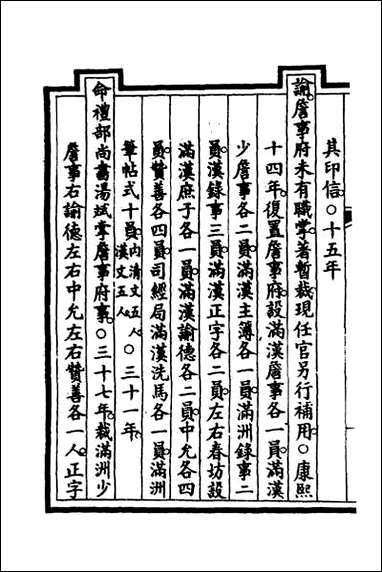 其印信○十五年
諭詹事府未有職掌著暫裁現任官另行補用○康熙
十四年復置詹事府設滿漢詹事各一員滿漢
少詹事各二員滿漢主簿各一員滿洲錄事二
員漢錄事三員滿漢正字各二員左右春坊設
滿漢庶子各一員滿漢諭德各二員中允各四
員贊善各四員司經局滿漢洗馬各一員滿洲
筆帖式十員內清文五人漢文五人○三十一年
命禮部尚書湯斌掌詹事府事○三十七年裁滿洲少
詹事右諭德左右中允左右贊善各一人正字